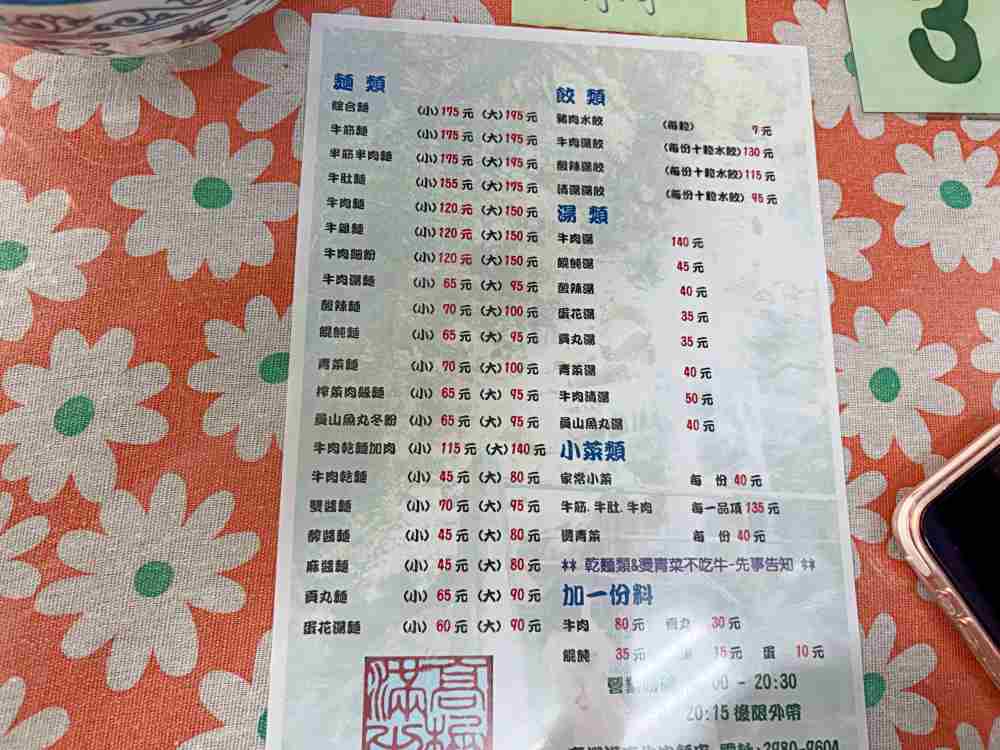 麵類
綜合麵 (小)175元 (大)195元
牛筋麵 (小)175元 (大)195元
半筋半肉麵 (小)175元 (大)195元
牛肚麵 (小)155元 (大)175元
牛肉麵 (小)120元 (大)150元
牛雜麵 (小)120元 (大)150元
牛肉細粉 (小)120元 (大)150元
牛肉湯麵 (小) 65元 (大) 95元
酸辣麵 (小) 70元 (大)100元
餛飩麵 (小) 65元 (大) 95元
青菜麵 (小) 70元 (大)100元
榨菜肉絲麵 (小) 65元 (大) 95元
員山魚丸冬粉 (小) 65元 (大) 95元
牛肉乾麵加肉 (小) 115元 (大)140元
牛肉乾麵 (小) 45元 (大) 80元
雙醬麵 (小) 70元 (大) 95元
醡醬麵 (小) 45元 (大) 80元
麻醬麵 (小) 45元 (大) 80元
貢丸麵 (小) 65元 (大) 90元
蛋花湯麵 (小) 60元 (大) 90元
餃類
豬肉水餃 (每粒) 7元
牛肉湯餃 (每份十粒水餃)130元
酸辣湯餃 (每份十粒水餃)115元
清湯湯餃 (每份十粒水餃) 95元
湯類
牛肉湯 140元
餛飩湯 45元
酸辣湯 40元
蛋花湯 35元
貢丸湯 35元
青菜湯 40元
牛肉清湯 50元
員山魚丸湯 40元
小菜類
家常小菜 每 份 40元
牛筋.牛肚.牛肉 每一品項135元
燙青菜 每 份 40元
** 乾麵類&燙青菜不吃牛-先事告知 **
加一份料
牛肉 80元 貢丸 30元
餛飩 35元 15元 蛋 10元
00 - 20:30
20:15後限外帶
2980-9604
3